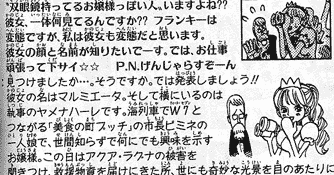 "双眼鏡持ってるお嬢様っぽい人"、いますよね??
彼女、一体何見てるんですか?? フランキーは
変態ですが、私は彼女も変態だと思います。
彼女の顔と名前が知りたいでーす。では、お仕事
頑張って下サイ☆☆ P.N.げんじゃらすぞーん
見つけましたか…。そうですか。では発表しましょう!!
彼女の名はマルミエータ。そして横にいるのは
執事のヤメナハーレです。海列車でW7と
つながる「美食の町プッチ」の市長ビミネの
一人娘で、世間知らずで何にでも興味を示す
お嬢様。この日はアクア・ラグナの被害を
聞きつけ、救援物資を届けにきた所、世にも奇妙な光景を目のあたりに